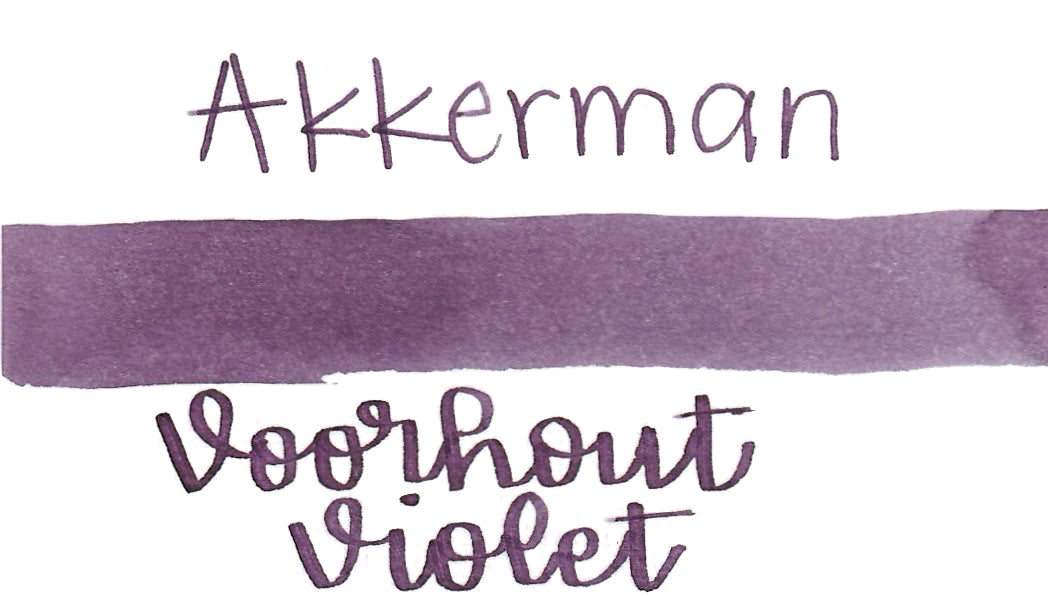 Akkerman
Voorhout
Violet